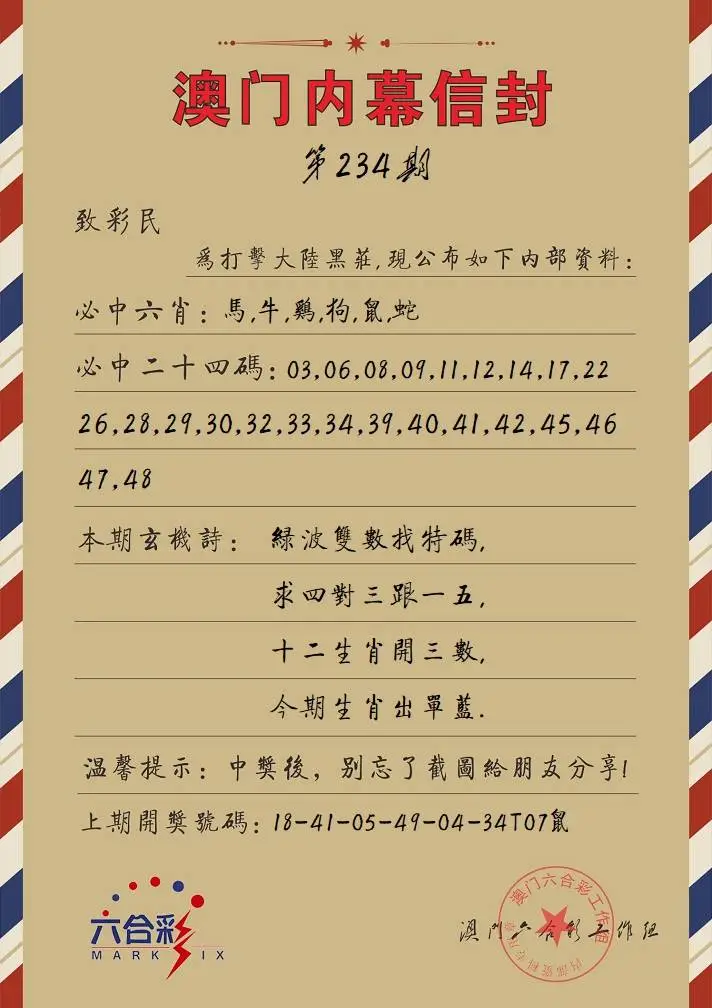 澳门内幕信封
第234期
致彩民
爲打擊大陸黑莊,現公布如下内部資料:
必中六肖:馬,牛,鷄,狗,鼠,蛇
必中二十四碼:03,06,08,09,11,12,14,17,22
26,28,29,30,32,33,34,39,40,41,42,45,46
47,48
本期玄機詩: 綠波雙數找特碼,
求四對三跟一五,
十二生肖開三數,
今期生肖出單藍.
温馨提示:中獎後,别忘了截圖給朋友分享!
上期開獎號碼:18-41-05-49-04-34T07鼠
六合彩
MARK SIX
澳门六合彩工作组
澳门六合彩工作组
内部资料专用章